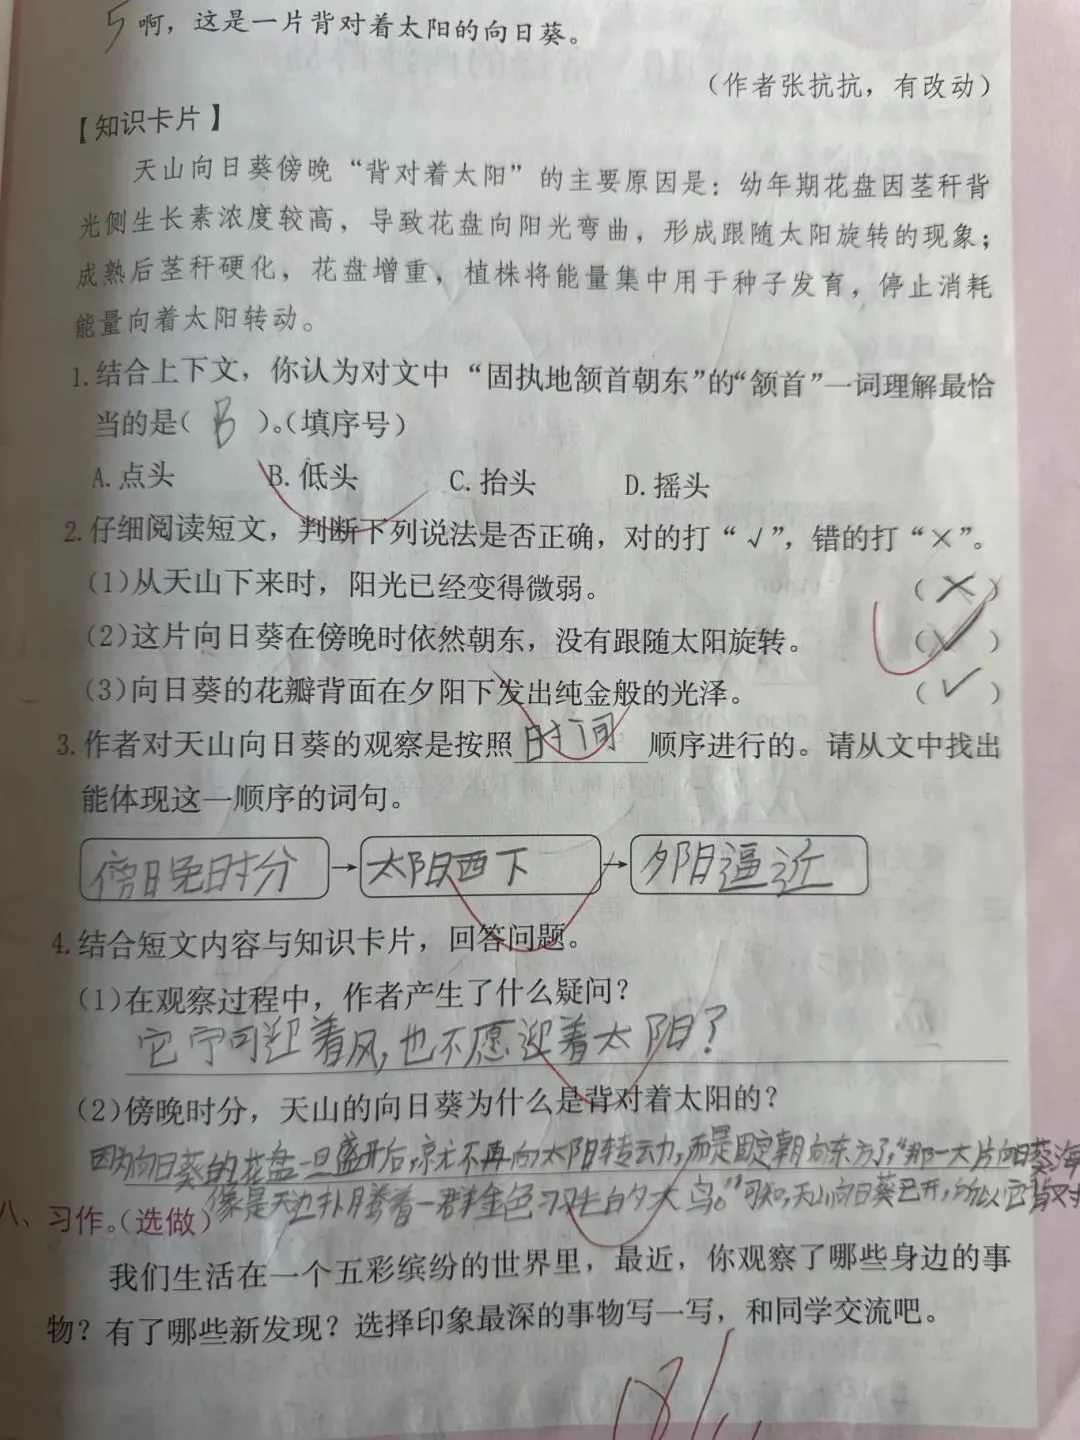 5 啊，这是一片背对着太阳的向日葵。
（作者张抗抗，有改动）
【知识卡片】
天山向日葵傍晚“背对着太阳”的主要原因是：幼年期花盘因茎秆背
光侧生长素浓度较高，导致花盘向阳光弯曲，形成跟随太阳旋转的现象；
成熟后茎秆硬化，花盘增重，植株将能量集中用于种子发育，停止消耗
能量向着太阳转动。
1.结合上下文，你认为对文中“固执地颔首朝东”的“颔首”一词理解最恰
当的是（ B ）。（填序号）
A.点头 B.低头 C.抬头 D.摇头
2.仔细阅读短文，判断下列说法是否正确，对的打“√”，错的打“×”。
（1）从天山下来时，阳光已经变得微弱。 （×）
（2）这片向日葵在傍晚时依然朝东，没有跟随太阳旋转。 （√）
（3）向日葵的花瓣背面在夕阳下发出纯金般的光泽。 （√）
3.作者对天山向日葵的观察是按照 时间 顺序进行的。请从文中找出
能体现这一顺序的词句。
傍晚时分 → 太阳西下 → 夕阳逼近
4.结合短文内容与知识卡片，回答问题。
（1）在观察过程中，作者产生了什么疑问？
它宁可迎着风，也不愿迎着太阳？
（2）傍晚时分，天山的向日葵为什么是背对着太阳的？
因为向日葵的花盘一旦盛开后，就不再向太阳转动，而是固定朝向东方了，“那一大片向日葵海
像是天边扑腾着一群金色羽毛的大鸟。”可知，天山向日葵已开，所以它背对
八、习作。（选做）
我们生活在一个五彩缤纷的世界里，最近，你观察了哪些身边的事
物？有了哪些新发现？选择印象最深的事物写一写，和同学交流吧。